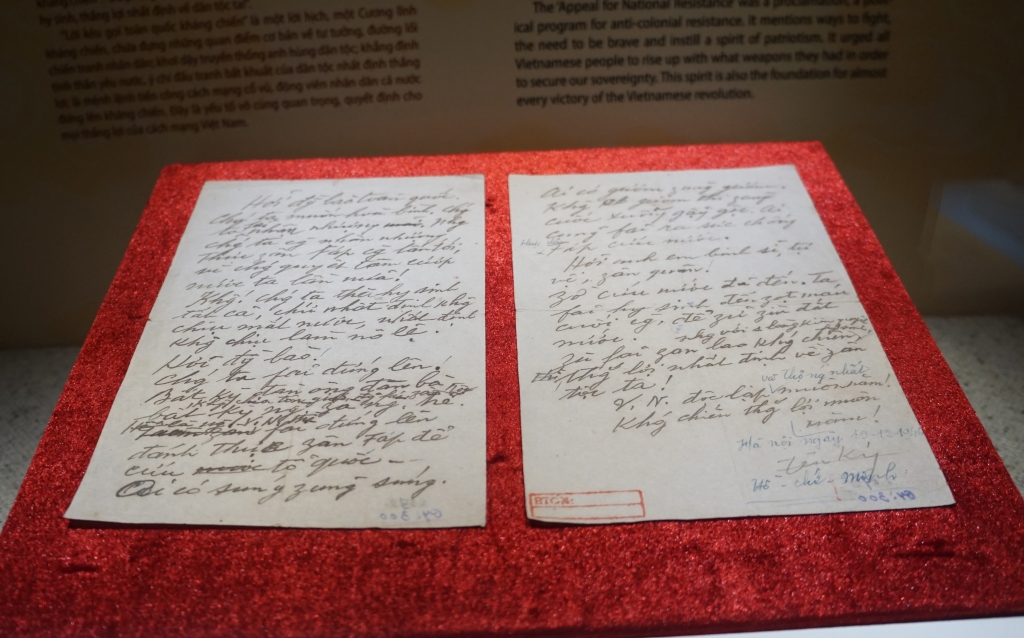 hy sinh, thắng lợi nhất định về dân tộc ta!".
"Lời kêu gọi toàn quốc kháng chiến" là một lời hịch, một Cương lĩnh
kháng chiến, chứa đựng những quan điểm cơ bản về tư tưởng, đường lối
chiến tranh nhân dân: khơi dậy truyền thống anh hùng dân tộc; khẳng định
tinh thần yêu nước, ý chí đấu tranh bất khuất của dân tộc nhất định thắng
lợi, là mệnh lệnh tiến công cách mạng cổ vũ, động viên nhân dân cả nước
đứng lên kháng chiến. Đây là yếu tố vô cùng quan trọng, quyết định cho
mọi thắng lợi của cách mạng Việt Nam.
The 'Appeal for National Resistance' was a proclamation, a
ical program for anti-colonial resistance. It mentions ways to fight,
the need to be brave and instill a spirit of patriotism. It urged all
Vietnamese people to rise up with what weapons they had in order
to secure our sovereignty. This spirit is also the foundation for almost
every victory of the Vietnamese revolution.
Hỡi đ/bào toàn quốc.
Chg ta muốn hoà bình, chg
ta nhg
chg ta cg nhân nhượng
thực zân Fáp cg lấn tới,
vì chg quyết tâm cướp
nước ta lần nữa!
Khg, chg ta thà hy sinh
tất cả, chứ nhất định khg
chịu mất nước, nhất định
khg chịu làm nô lệ.
Hỡi đ/bào!
Chg ta fải đứng lên.
Bất kỳ đàn ông đàn bà
bất kỳ
đứng lên
đánh thực zân Fáp để
cứu tổ quốc –
Ai có súng zùng súng.
Gy. 300
Ai có gươm zùng gươm.
Khg có gươm thì zùng
cuốc xuổng gậy gộc. Ai
cũng fải ra sức chống
Fáp cứu nước.
Hỡi anh em binh sĩ, tự
vệ, zân quân.
Zờ cứu nước đã đến. Ta
fải hy sinh đến zọt máu
cuối cg, để zữ zìn đất
nước.
Zù fải zan lao khg chiến,
thg lợi nhất định về zân
tộc ta!
và thống nhất
V. N. độc lập muôn năm!
Khg chiến thg lợi muôn
năm!
Hà nội ngày 19-12-1946
Hồ - chí - Minh
BTCM:
Gy. 300